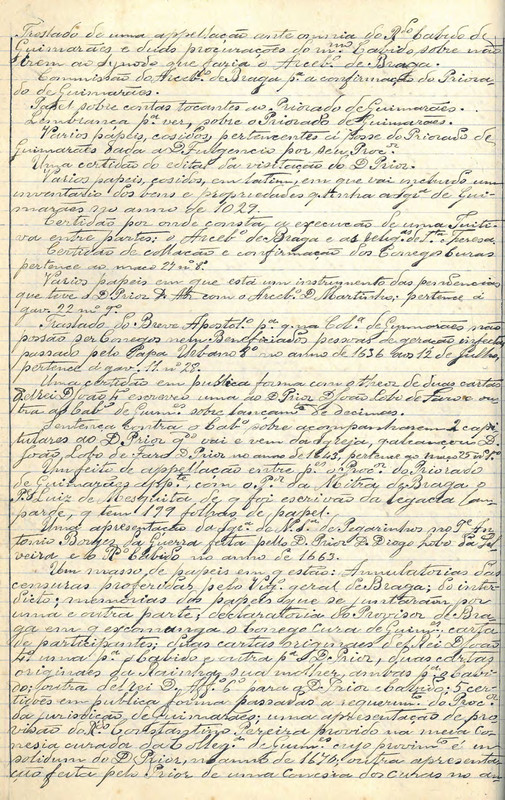 Treslado de uma appellação ante omnia do R.do Cabido de
Guimarães e duas procurações do m.mo Cabido, sobre não
irem ao Synodo que fazia o Arceb.o de Braga.
Commissão do Arceb.o de Braga p.a a confirmação do Priora-
do de Guimarães.
Papel sobre contas tocantes ao Priorado de Guimarães.
Lembrança p.a ver, sobre o Priorado de Guimarães.
Varios papeis, cosidos, pertencentes á posse do Priorado de
Guimarães dada a D. Fulgencio por seu Proc.or
Uma certidão do edital da visitação do D. Prior.
Varios papeis, cosidos, em latim, em que vai incluido um
inventario dos bens e propriedades q. tinha a Igr.a de Gui-
marães no anno de 1029.
Certidão por onde consta a execução de uma Tuiti-
va entre partes: o Arceb.o de Braga e as relig.as de S.ta Theresa.
Certidão de collação e confirmação dos Conegos Curas
pertence ao maço 27 n.o 8.
Varios papeis em que está um instrumento das pendencias
que teve o D. Prior D. Aff. com o Arceb.o D. Martinho; pertence á
gav. 22 n.o 9.
Traslado do Breve Apostol.o p.a q. na Col.a de Guimarães não
possão ser Conegos nem Beneficiados pessoas de geração infecta
passado pelo Papa Urbano 8.o no anno de 1636 aos 12 de Julho,
pertence á gav. 11 n.o 28.
Uma certidão em publica forma com o theor de duas cartas
d'elrei D. João 4.o escreveu uma ao D. Prior D. João Lobo de Faro e ou-
tra ao Cab.o de Guim.es sobre lançam.to de decimas.
Sentença contra o Cab.o sobre acompanharem 2 capi-
tulares ao D. Prior q.do vai e vem da Igreja, q. alcançou D.
João Lobo de Faro D. Prior no anno de 1643, pertence ao maço 25 n.o 1.o
Um feito de appellação entre p.es o Proc.or do Priorado
de Guimarães app.te com o P.or da Mitra de Braga e
P.e Luiz de Mesquita de q. foi escrivão da legacia
q. tem 199 folhas de papel.
Uma apresentação da Igr.a de N. S.ra de Pegarinhos no P.e An-
tonio Borges da Guerra feita pello D. Prior D. Diogo Lobo da Sil-
veira e o R.do Cabido no anno de 1663.
Um masso de papeis em q. estão: Annulatorias das
censuras proferidas pelo Vig.o geral de Braga; do inter-
dicto; memorias dos papeis que se juntaram por
uma e outra parte; declaratoria do Provisor de Bra-
ga em q. escomunga o Conego Cura de Guim.es; carta
de participantes; ditas cartas originaes de elRei D. João
4.o uma p.a o Cabido e outra p.a o D. Prior, duas cartas
originaes da Rainha sua mulher, ambas p.a o Cabi-
do; outra de elRei D. Aff.o 6.o para o D. Prior e Cabido; 5 cer-
tidões em publica forma passadas a requerim.to do Proc.or
da jurisdicção de Guimarães; uma apresentação de pro-
visão do R.do Constantino Pereira provido na meia Co-
nesia curada da Colleg.a de Guim.es cujo provim.to é in
solidum do D. Prior, no anno de 1676; outra apresenta-
ção feita pelo Prior de uma Conesia dos Curas no an-